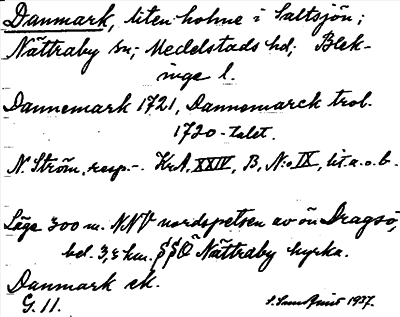 Danmark, liten holme i Saltsjön;
Nättraby sn; Medelstads hd; Blek-
inge l.
Dannemark 1721, Dannemarck trol.
1720-talet.
N. Ström, resp.-. KrA, XXIV, B, N:o IX, lit. a. o. b.
Läge 300 m. NNV nordspetsen av ön Dragsö,
bel. 3,8 km. SSÖ Nättraby kyrka.
Danmark ek.
G. 11.
1937.